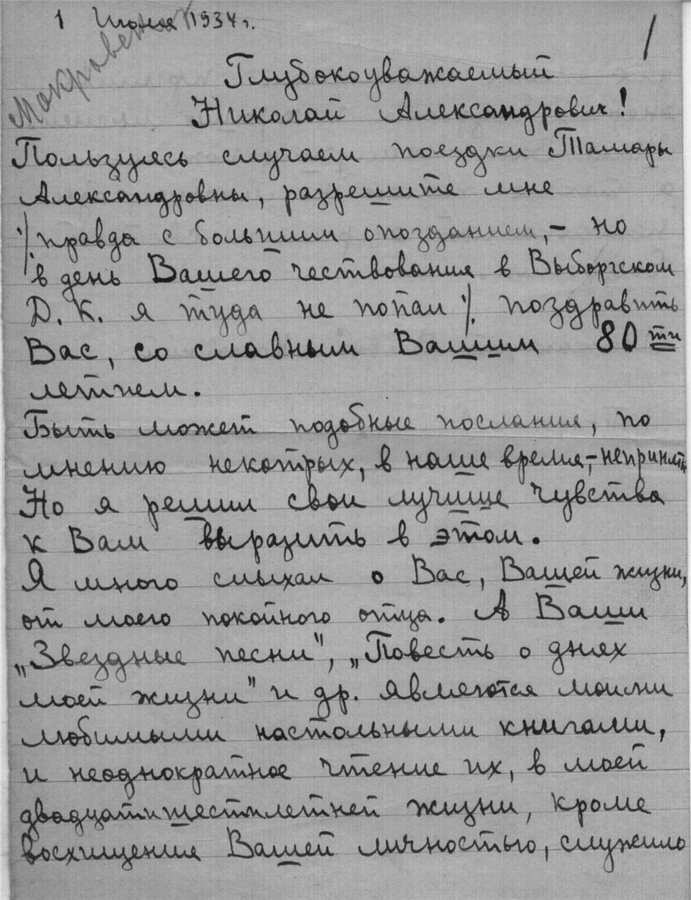 1 Июня 1934 г.
1
Глубокоуважаемый
Николай Александрович!
Пользуясь случаем поездки Тамары
Александровны, разрешите мне
% правда с большим опозданием, – но
в день Вашего чествования в Выборгском
Д. К. я туда не попал % поздравить
Вас, со славным Вашим 80 ти
летием.
Быть может подобные послания, по
мнению некотрых, в наше время, – неприняты
Но я решил свои лучшие чувства
к Вам выразить в этом.
Я много слыхал о Вас, Вашей жизни,
от моего покойного отца. А Ваши
„Звездные песни", „Повесть о днях
моей жизни" и др. являются моими
любимыми настольными книгами,
и неоднократное чтение их, в моей
двадцатишестилетней жизни, кроме
восхищения Вашей личностью, служило